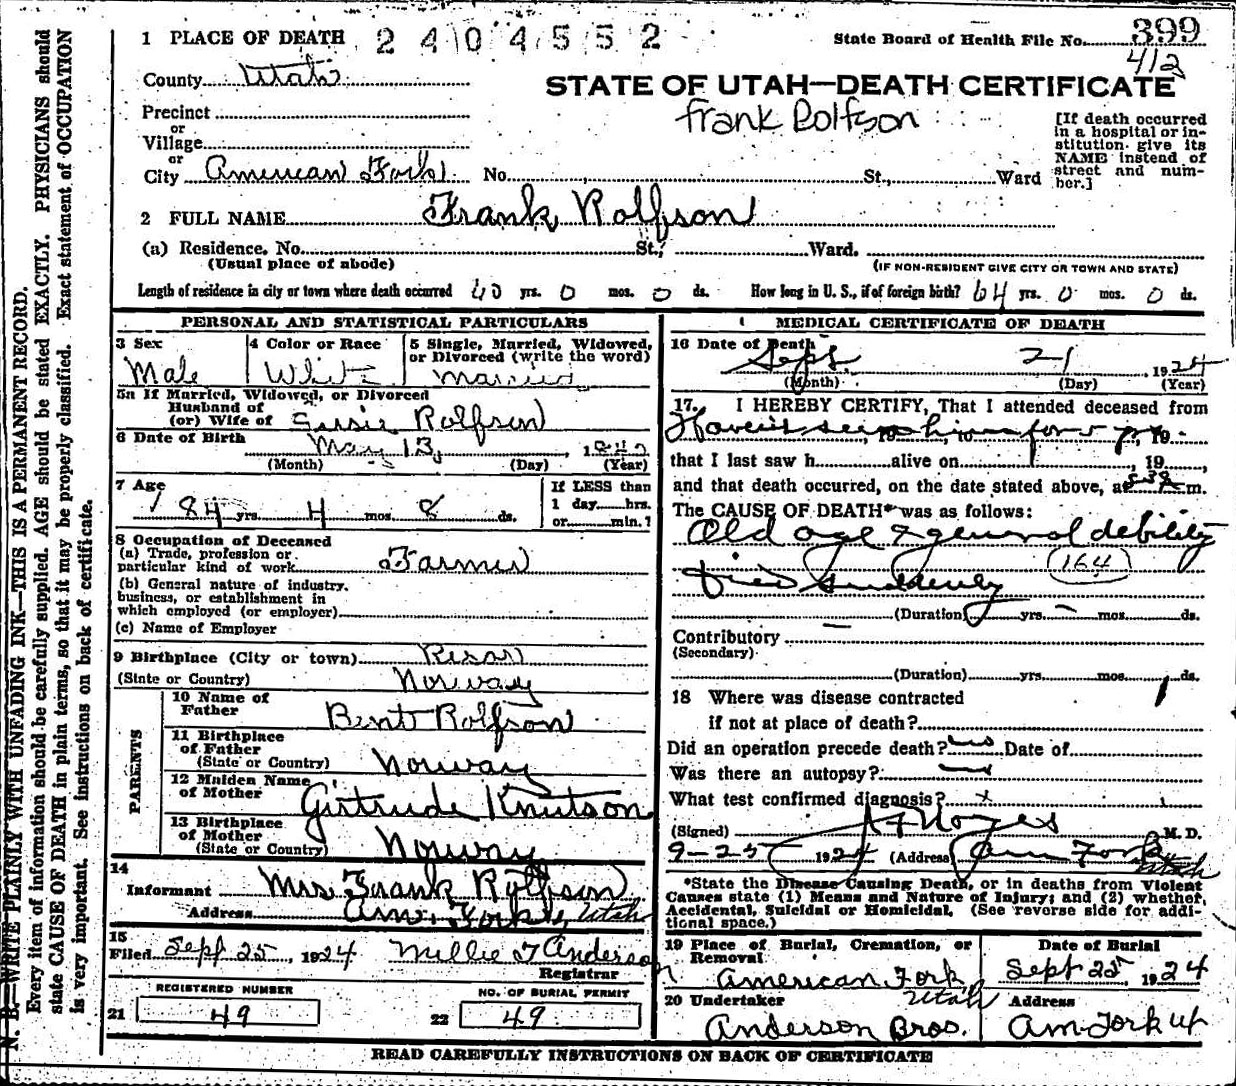 1 PLACE OF DEATH 2404552 State Board of Health File No. 399
412
County Utah
STATE OF UTAH—DEATH CERTIFICATE
Frank Rolfson
Precinct
or
Village
or
City American Fork No. St., Ward
[If death occurred
in a hospital or in-
stitution give its
NAME instead of
street and num-
ber.]
2 FULL NAME Frank Rolfson
(a) Residence. No. St., Ward.
(Usual place of abode) (IF NON-RESIDENT GIVE CITY OR TOWN AND STATE)
Length of residence in city or town where death occurred yrs. 0 mos. 0 ds. How long in U. S., if of foreign birth? 64 yrs. 0 mos. 0 ds.
PERSONAL AND STATISTICAL PARTICULARS
3 Sex 4 Color or Race 5 Single, Married, Widowed,
or Divorced (write the word)
Male White Married
5a If Married, Widowed, or Divorced
Husband of
(or) Wife of Rolfson
6 Date of Birth May 13,
(Month) (Day) (Year)
7 Age If LESS than
1 day hrs.
84 yrs. 4 mos. 8 ds. or min.?
8 Occupation of Deceased
(a) Trade, profession or
particular kind of work Farmer
(b) General nature of industry,
business, or establishment in
which employed (or employer)
(c) Name of Employer
9 Birthplace (City or town)
(State or Country) Norway
PARENTS
10 Name of
Father Bent Rolfson
11 Birthplace
of Father
(State or Country) Norway
12 Maiden Name
of Mother Girtrude Knutson
13 Birthplace
of Mother
(State or Country) Norway
14
Informant Mrs Frank Rolfson
Address Am. Fork, Utah
15
Filed Sept 25, 1924 Millie T Anderson
Registrar
REGISTERED NUMBER NO. OF BURIAL PERMIT
21 49 22 49
MEDICAL CERTIFICATE OF DEATH
16 Date of Death Sept. 21, 1924
(Month) (Day) (Year)
17. I HEREBY CERTIFY, That I attended deceased from
Havent seen him for yr, 19
that I last saw h alive on , 19 ,
and that death occurred, on the date stated above, at m.
The CAUSE OF DEATH* was as follows:
Old age & general debility
died suddenly (164)
(Duration) yrs. mos. ds.
Contributory
(Secondary)
(Duration) yrs. mos. ds.
18 Where was disease contracted
if not at place of death?
Did an operation precede death? no Date of
Was there an autopsy? no
What test confirmed diagnosis? x
(Signed) Noyes M. D.
9-25, 1924 (Address) Am Fork Utah
*State the Disease Causing Death, or in deaths from Violent
Causes state (1) Means and Nature of Injury; and (2) whether,
Accidental, Suicidal or Homicidal, (See reverse side for addi-
tional space.)
19 Place of Burial, Cremation, or
Removal Date of Burial
American Fork Utah Sept 25, 1924
20 Undertaker Address
Anderson Bros. Am Fork Ut
READ CAREFULLY INSTRUCTIONS ON BACK OF CERTIFICATE
N. B.—WRITE PLAINLY WITH UNFADING INK—THIS IS A PERMANENT RECORD.
Every item of information should be carefully supplied. AGE should be stated EXACTLY. PHYSICIANS should
state CAUSE OF DEATH in plain terms, so that it may be properly classified. Exact statement of OCCUPATION
is very important. See instructions on back of certificate.